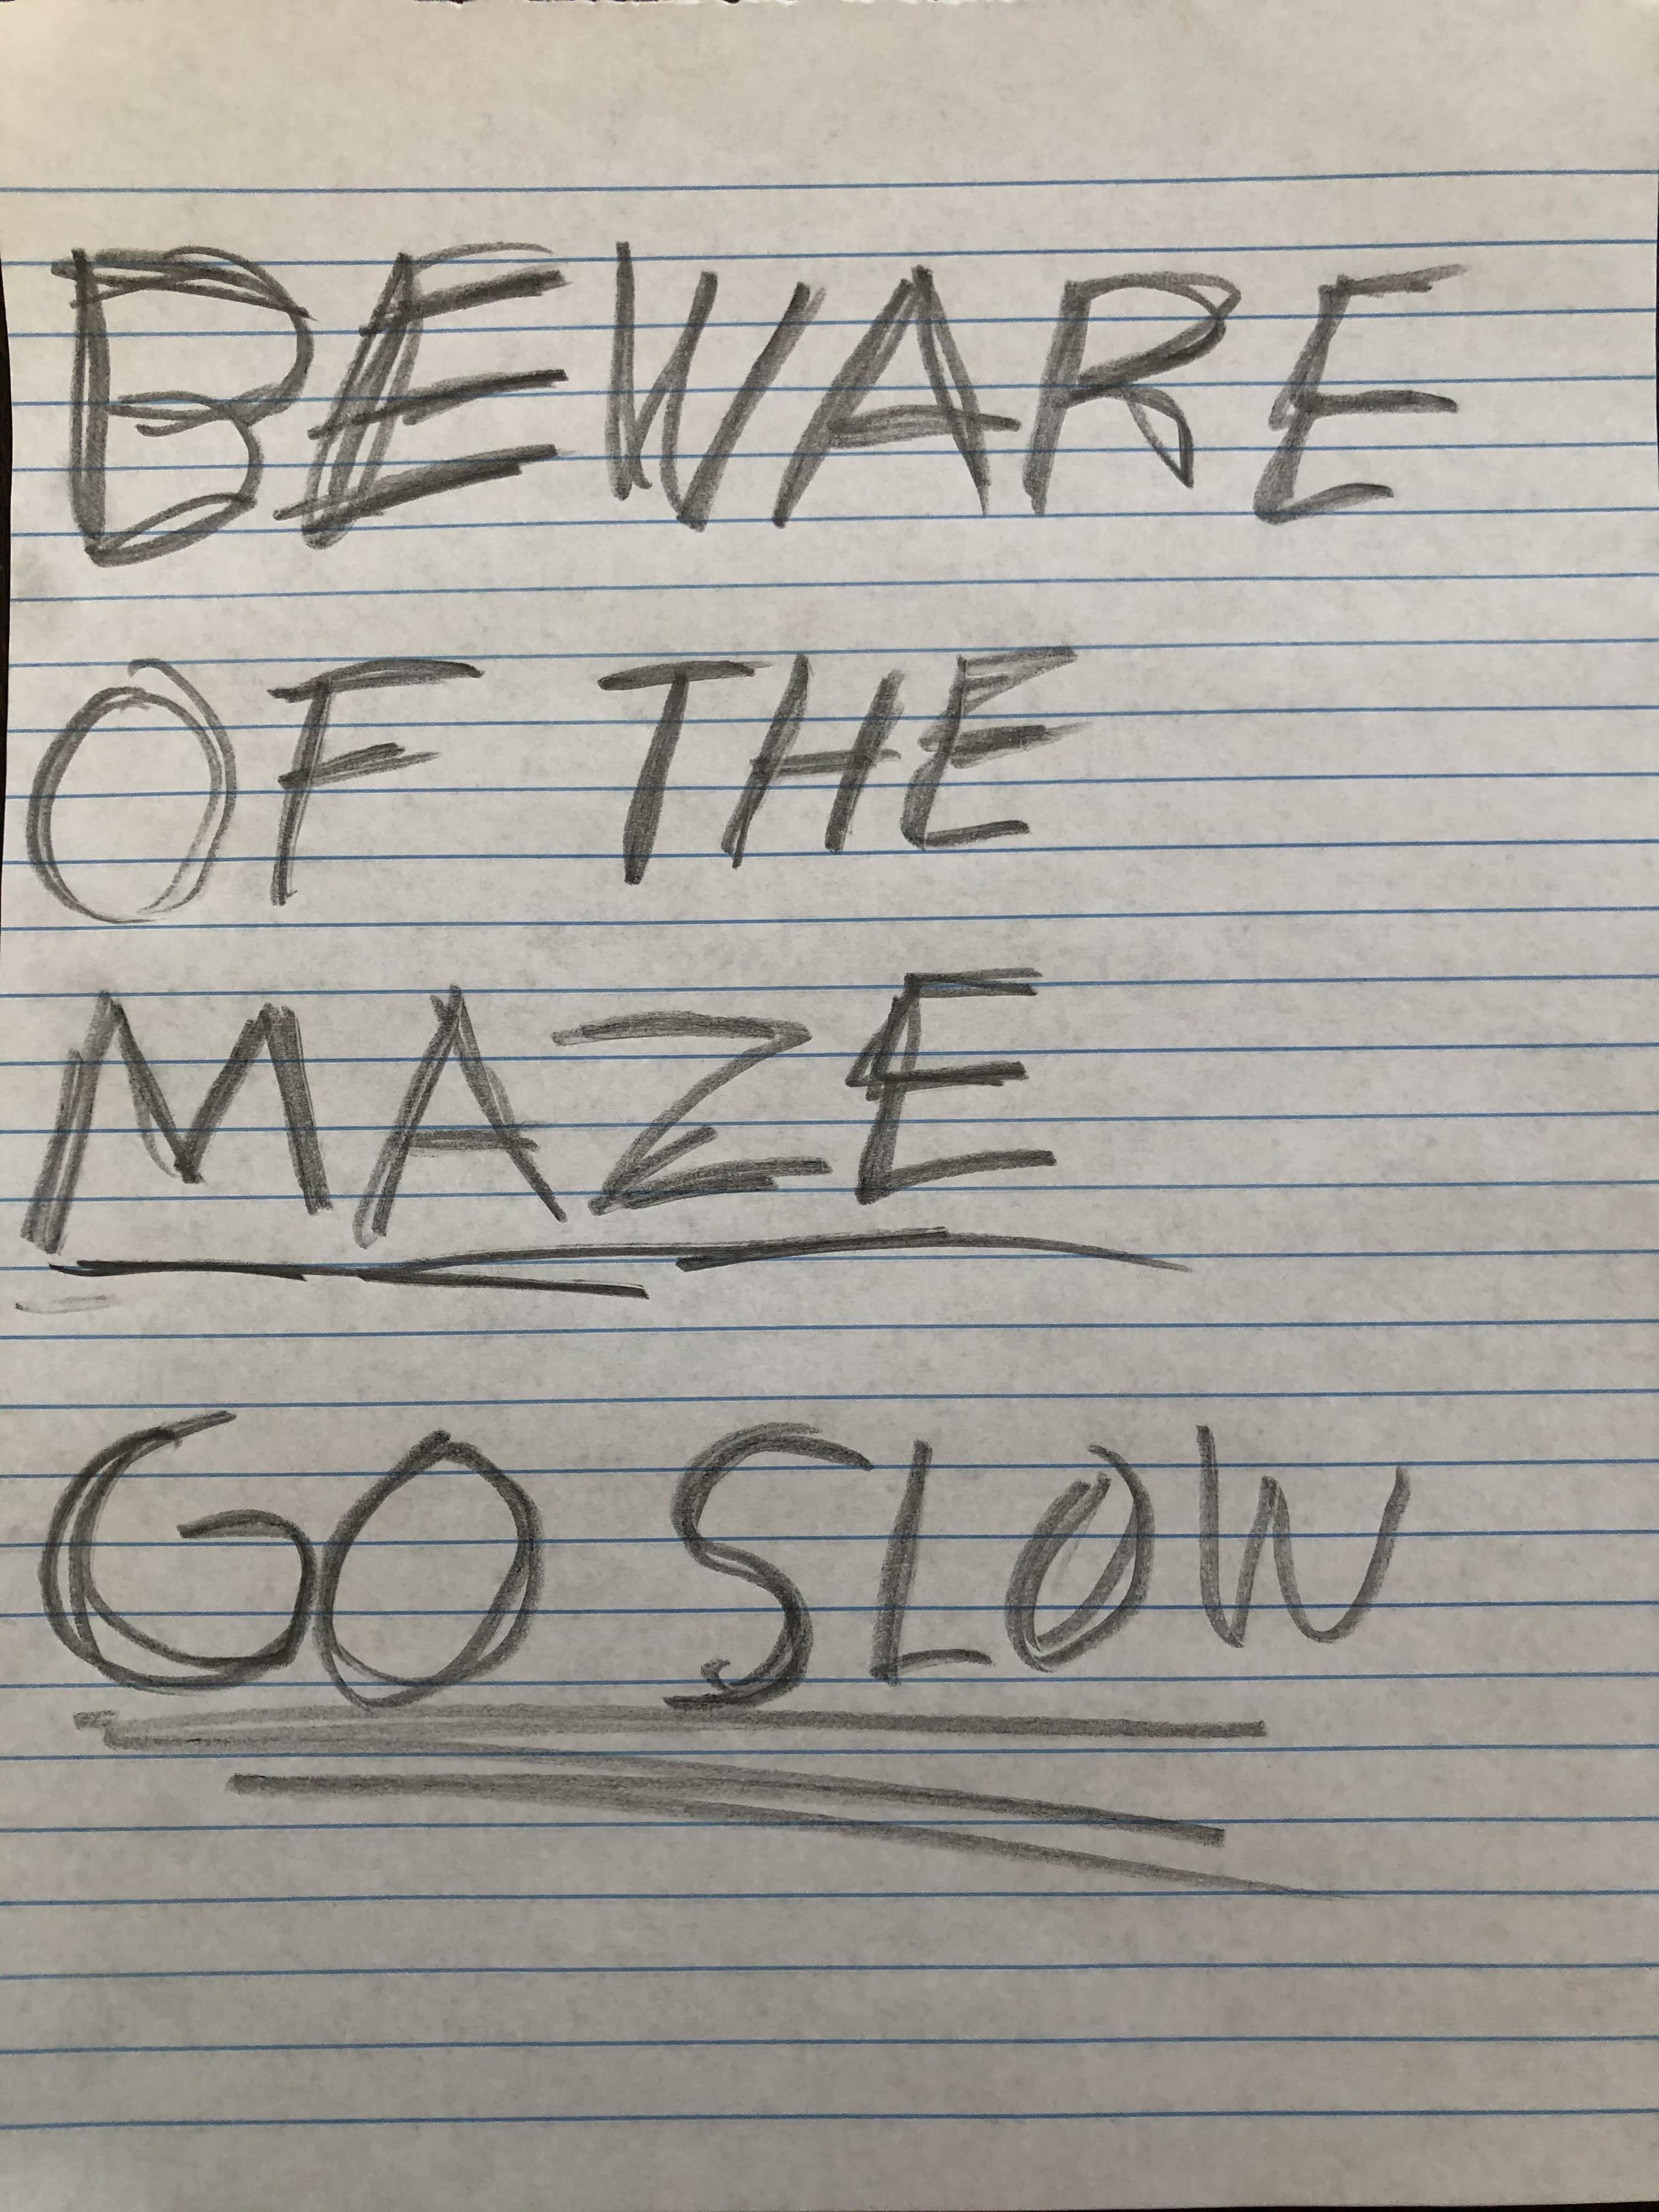 BEWARE
OF THE
MAZE
GO SLOW